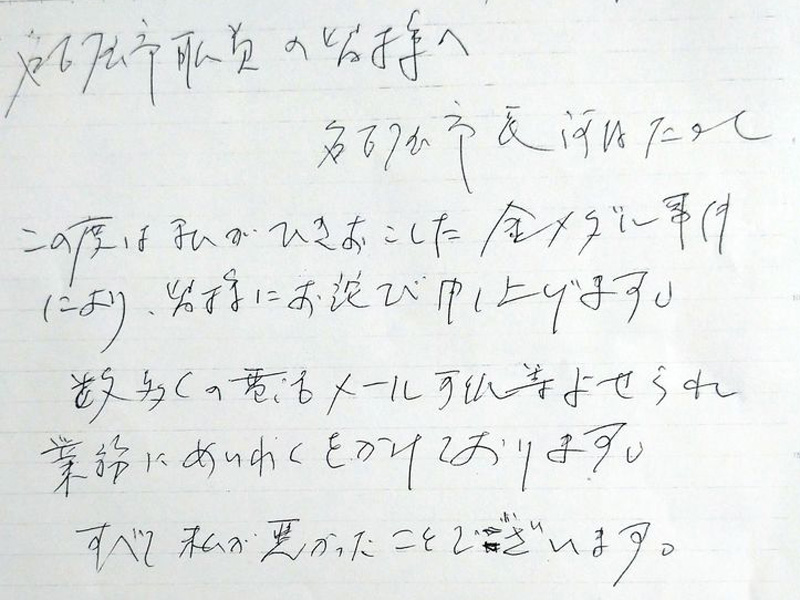 名古屋市职员の皆様へ
名古屋市長 河村たかし
この度は私がひきおこした金メダル事件
により、皆様にお詫び申し上げます。
数多くの電話メール手紙等よせられ
業務にめいわくをかけております。
すべて私が悪かったことでございます。